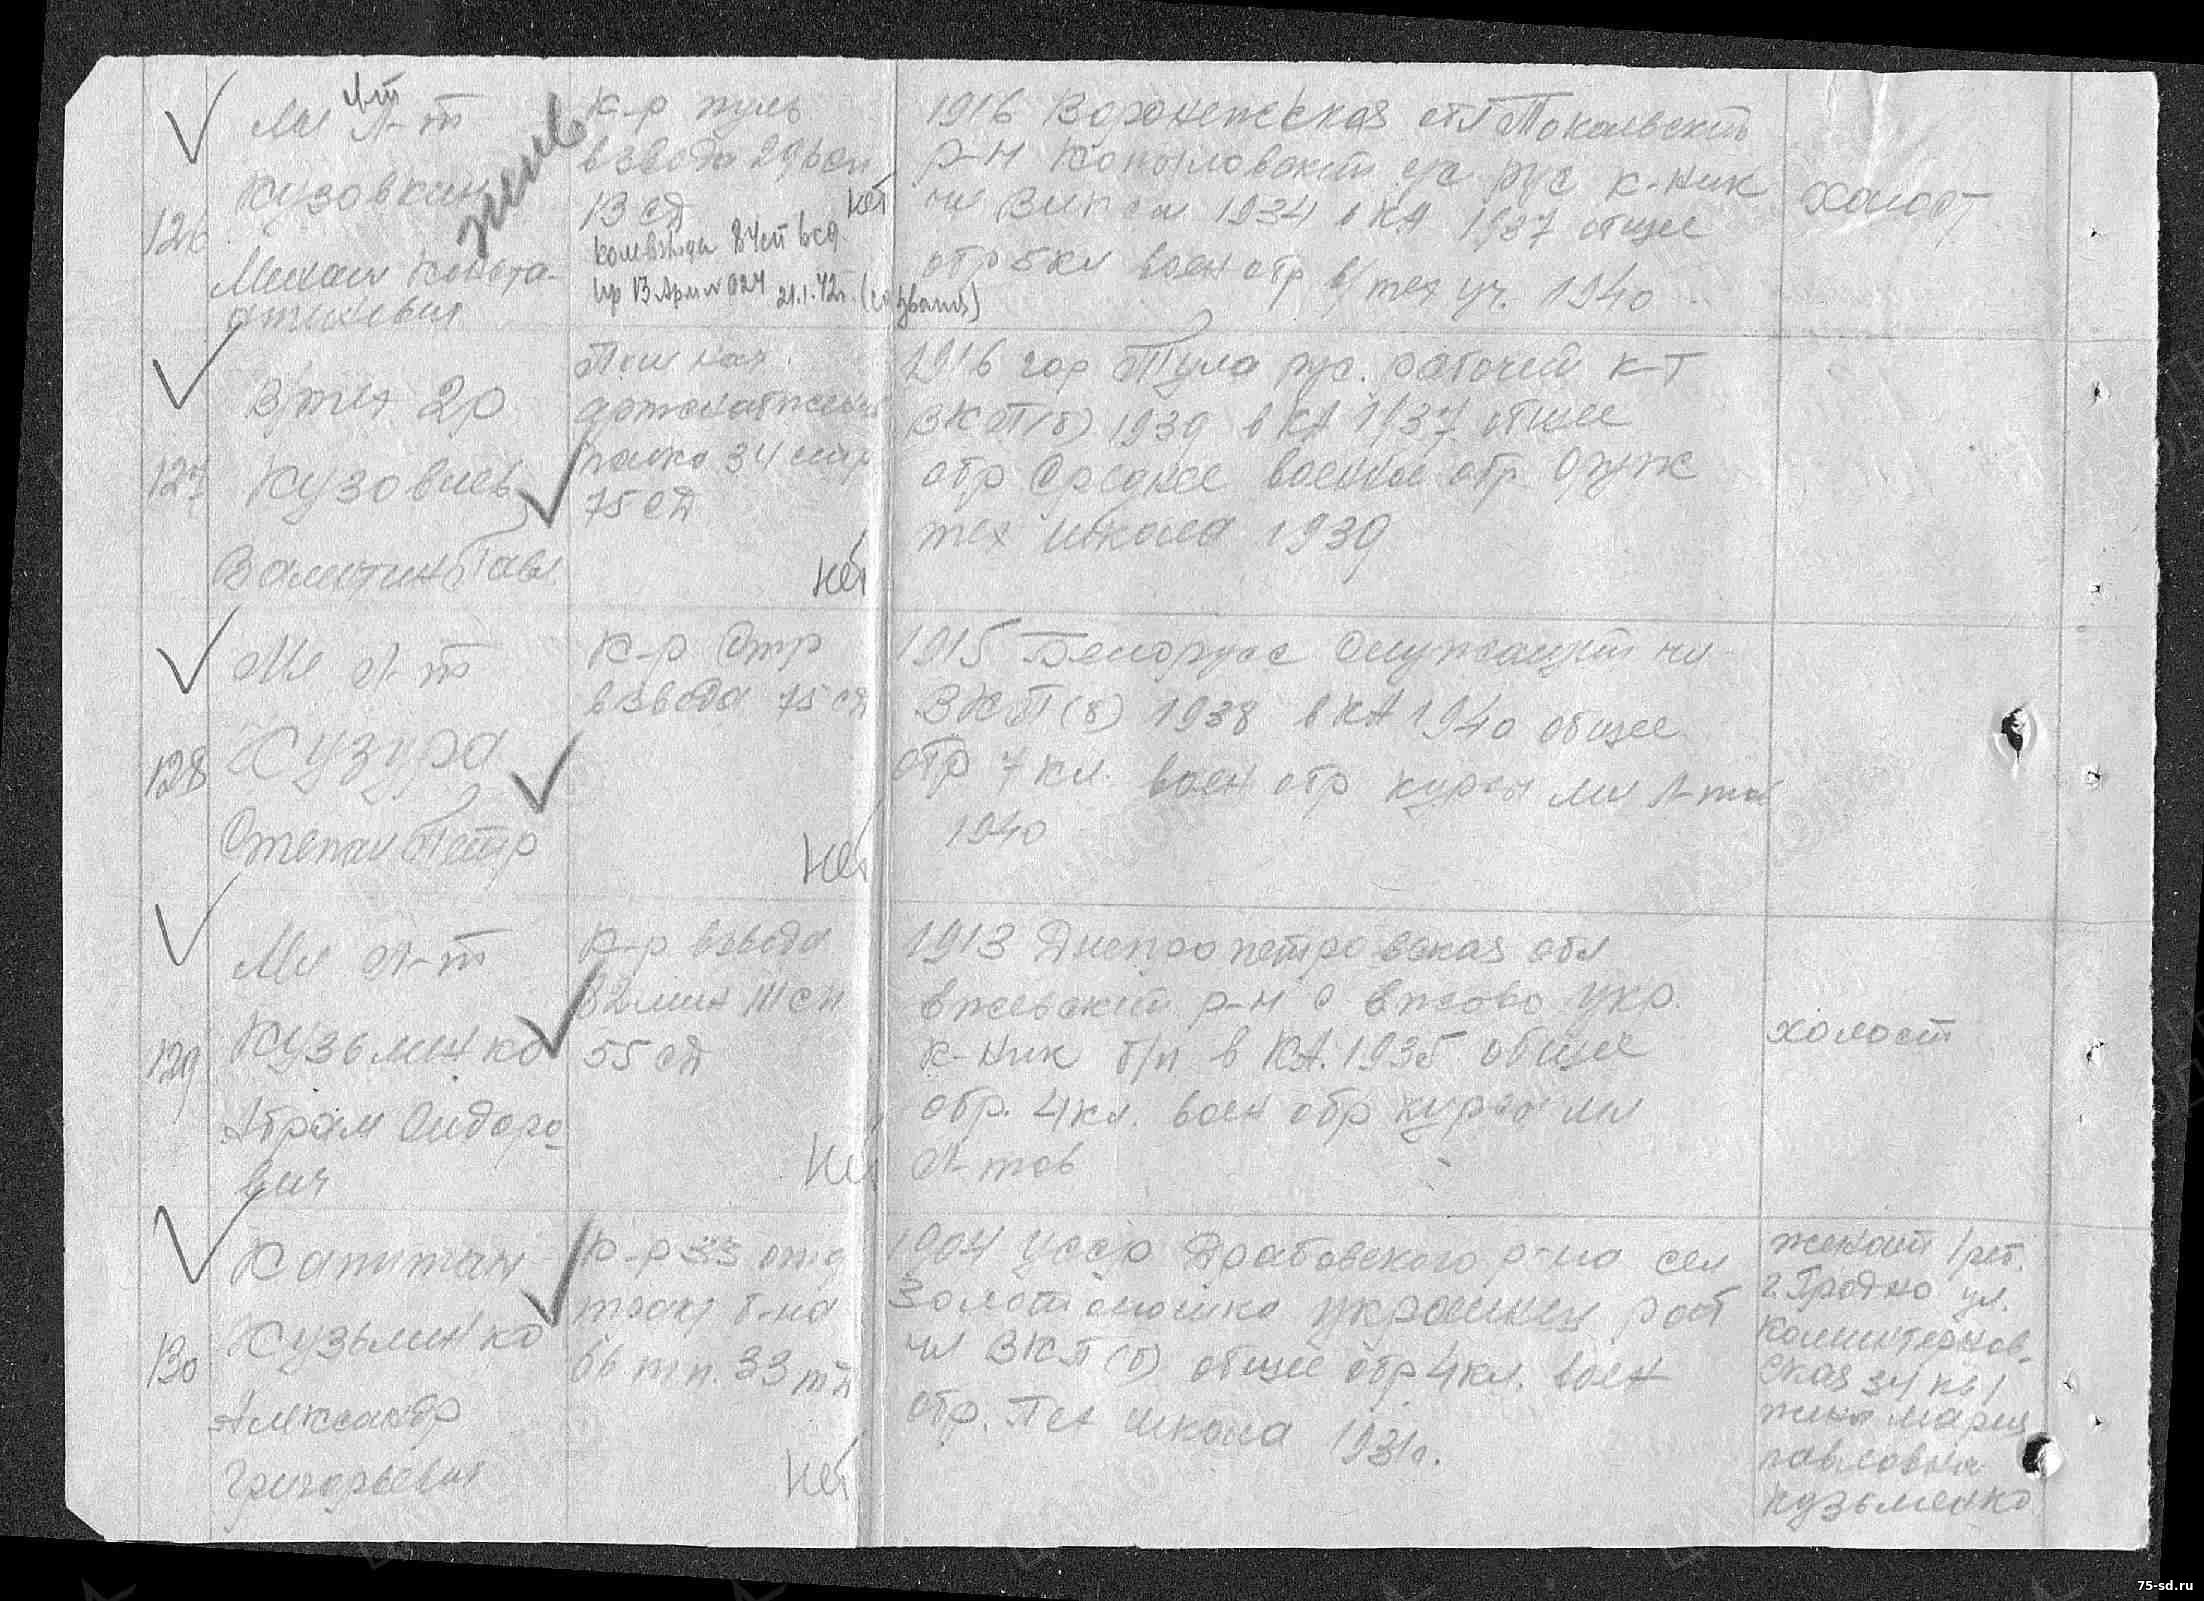 126
Мл Л-т
л-т
Кузовкин
Михаил Конста-
нтинович
жив
к-р пуль
взвода 29 сп
13 сд
нет
ком взвода 84 сп 6 сд
пр 13 Армии 024 21.1.42г.
1916 Воронежская обл Токаевский
р-н с/с рус к-ник
чл ВЛКСМ 1934 в КА 1937 общее
обр 5 кл воен обр в/тех уч. 1940
холост
127
В/тех 2 р
Кузовлев
Валентин Павл
Пом нач.
артснабжения
полка 34 сп
75 сд
нет
1916 гор Тула рус. рабочий к-т
ВКП(б) 1939 в КА 1937 общее
обр Среднее военное обр Оруж
тех школа 1939
128
Мл Л-т
Кузура
Степан Петр
к-р Стр
взвода 75 сд
нет
1915 Белорусс Служащий чл
ВКП(б) 1938 в КА 1940 общее
обр 7 кл. воен обр курсы мл л-тов
1940
129
Мл Л-т
Кузьминко
Абрам Сидоро-
вич
к-р взвода
82 мин 111 сп
55 сд
нет
1913 Днепропетровская обл
р-н с укр.
к-ник б/п в КА. 1935 общее
обр. 4 кл. воен обр курсы мл
Л-тов
холост
130
Капитан
Кузьминко
Александр
Григорьевич
к-р 33 отд
тракт б-на
66 тп. 33 тд
нет
1904 УССР Драбовского р-на сел
Золотоношка украинец раб
чл ВКП(б) общее обр 4 кл. воен
обр. Пех школа 1931г.
женат 1 реб.
г. Гродно ул.
Коминтернов-
ская 34 кв 1
жена Мария
Павловна
Кузьменко
75-sd.ru